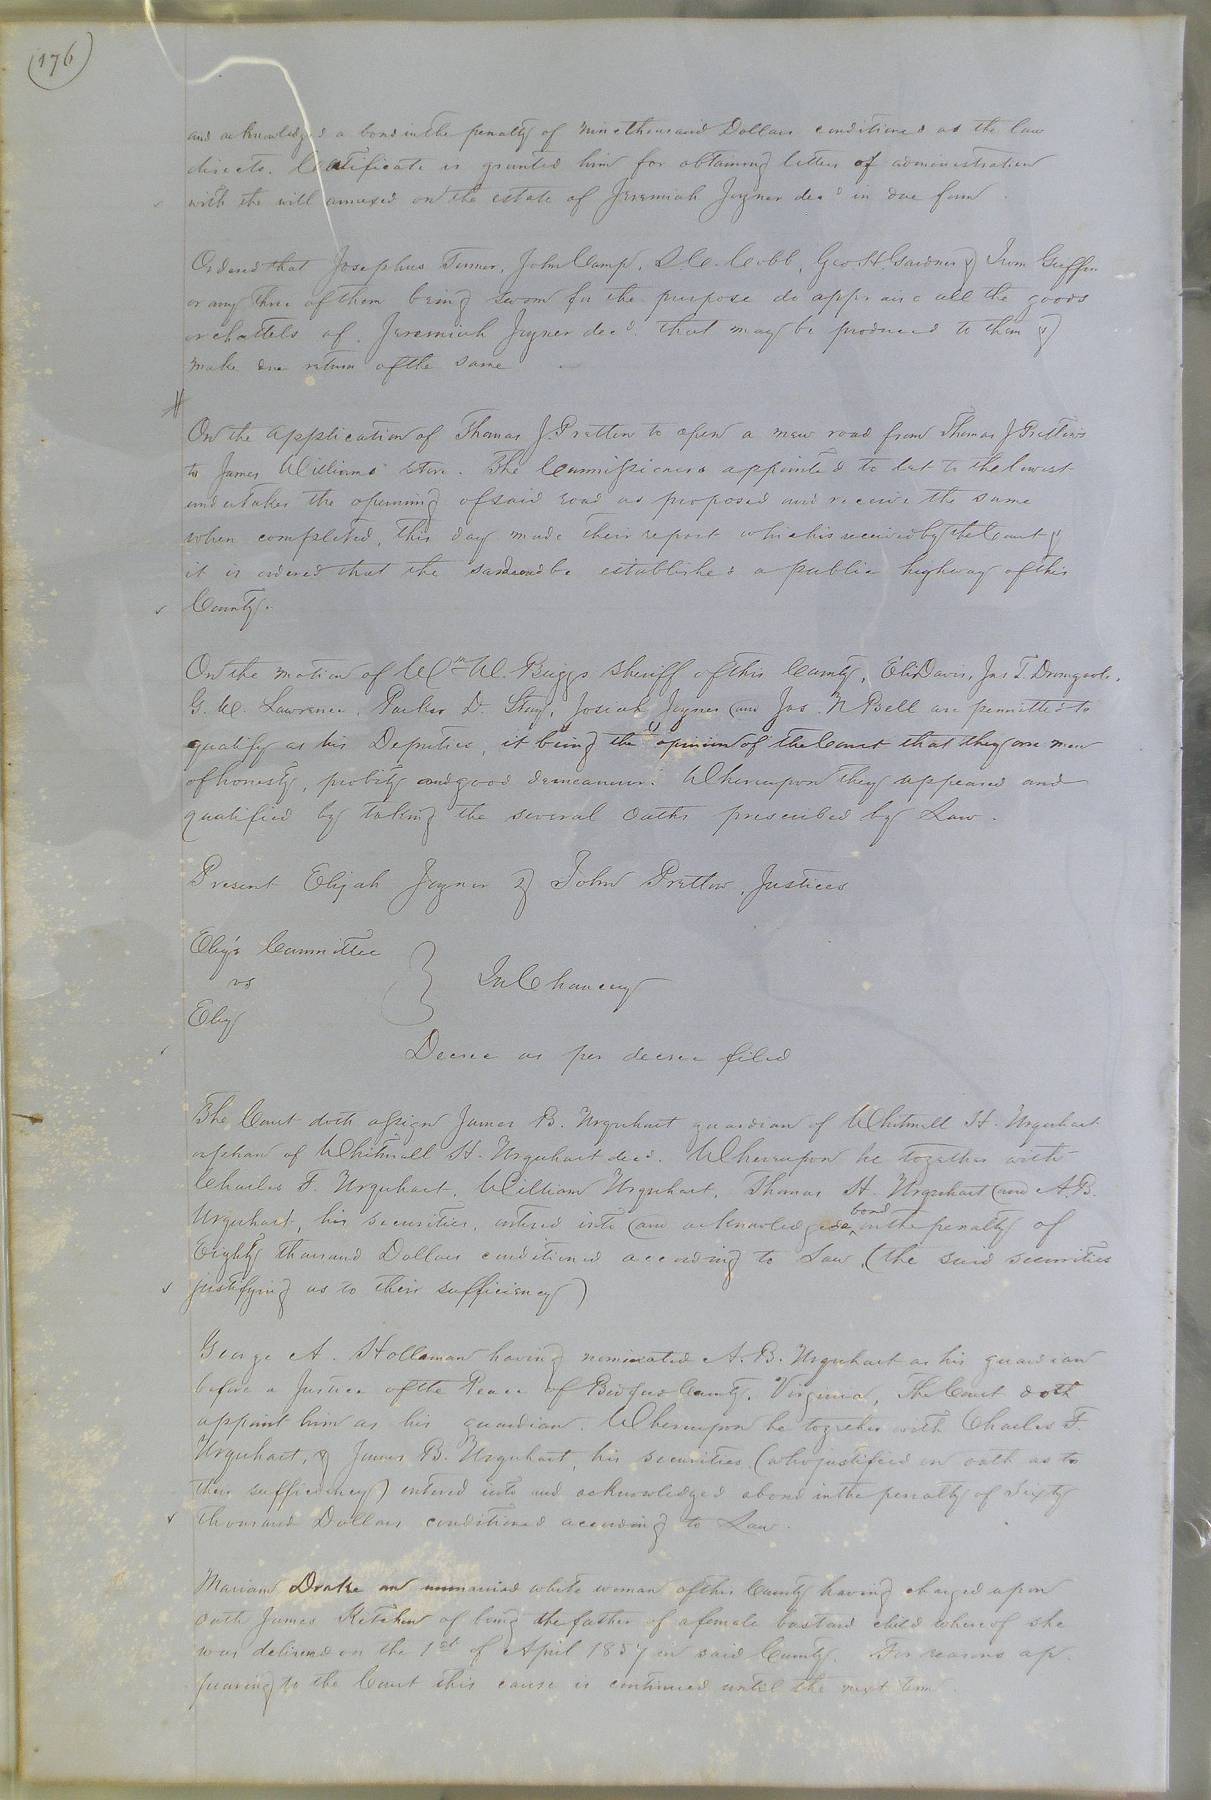 (176)
and acknowledged a bond in the penalty of Nine thousand Dollars conditioned as the law
directs. Certificate is granted him for obtaining letters of administration
with the will annexed on the estate of Jeremiah Joyner decd in due form.
Ordered that Josephus Turner, John Camp, Geo H Gardner & Irvin Griffin
or any three of them being sworn for the purpose do appraise all the goods
or chattels of Jeremiah Joyner decd. that may be produced to them &
make due return of the same
On the application of Thomas J. Pretlow to open a new road from Thomas J Pretlow's
to James Williams' Store. The Commissioners appointed to let to the lowest
undertaker the openning of said road as proposed and receive the same
when completed, this day made their report which is received by the Court &
it is ordered that the said road be established a public highway of this
County.
On the motion of Wm W. Briggs Sheriff of this County, Eli Davis, Jas T. Drumgoole,
G. W. Lawrence, Parker D. Josiah Joyner and Jas. N Bell are permitted to
qualify as his Deputies, it being the opinion of the Court that they are men
of honesty, probity and good demeanour. Whereupon they appeared and
qualified by taking the several oaths prescribed by Law.
Present Elijah Joyner & John Pretlow, Justices
Eley's Committee
vs } In Chancery
Eley
Decree as per decree filed
The Court doth assign James B. Urquhart guardian of Whitmell H. Urquhart
orphan of Whitmell H. Urquhart decd. Whereupon he together with
Charles F. Urquhart, William Urquhart, Thomas H. Urquhart and A. B.
Urquhart, his securities, entered into and acknowledged a bond in the penalty of
Eighty thousand Dollars conditioned according to Law, (the said securities
justifying as to their sufficiency)
George A. Holleman having nominated A. B. Urquhart as his guardian
before a Justice of the Peace of Bedford County, Virginia, The Court doth
appoint him as his guardian. Whereupon he together with Charles F.
Urquhart, & James B. Urquhart, his securities (who justified on oath as to
their sufficiency) entered into and acknowledged a bond in the penalty of Sixty
thousand Dollars conditioned according to Law.
Mariam Drake an unmarried white woman of this County having charged upon
oath James Kitchen of being the father of a female bastard child whereof she
was delivered on the 1st of April 1857 in said County. For reasons ap-
pearing to the Court this cause is continued until the next term.